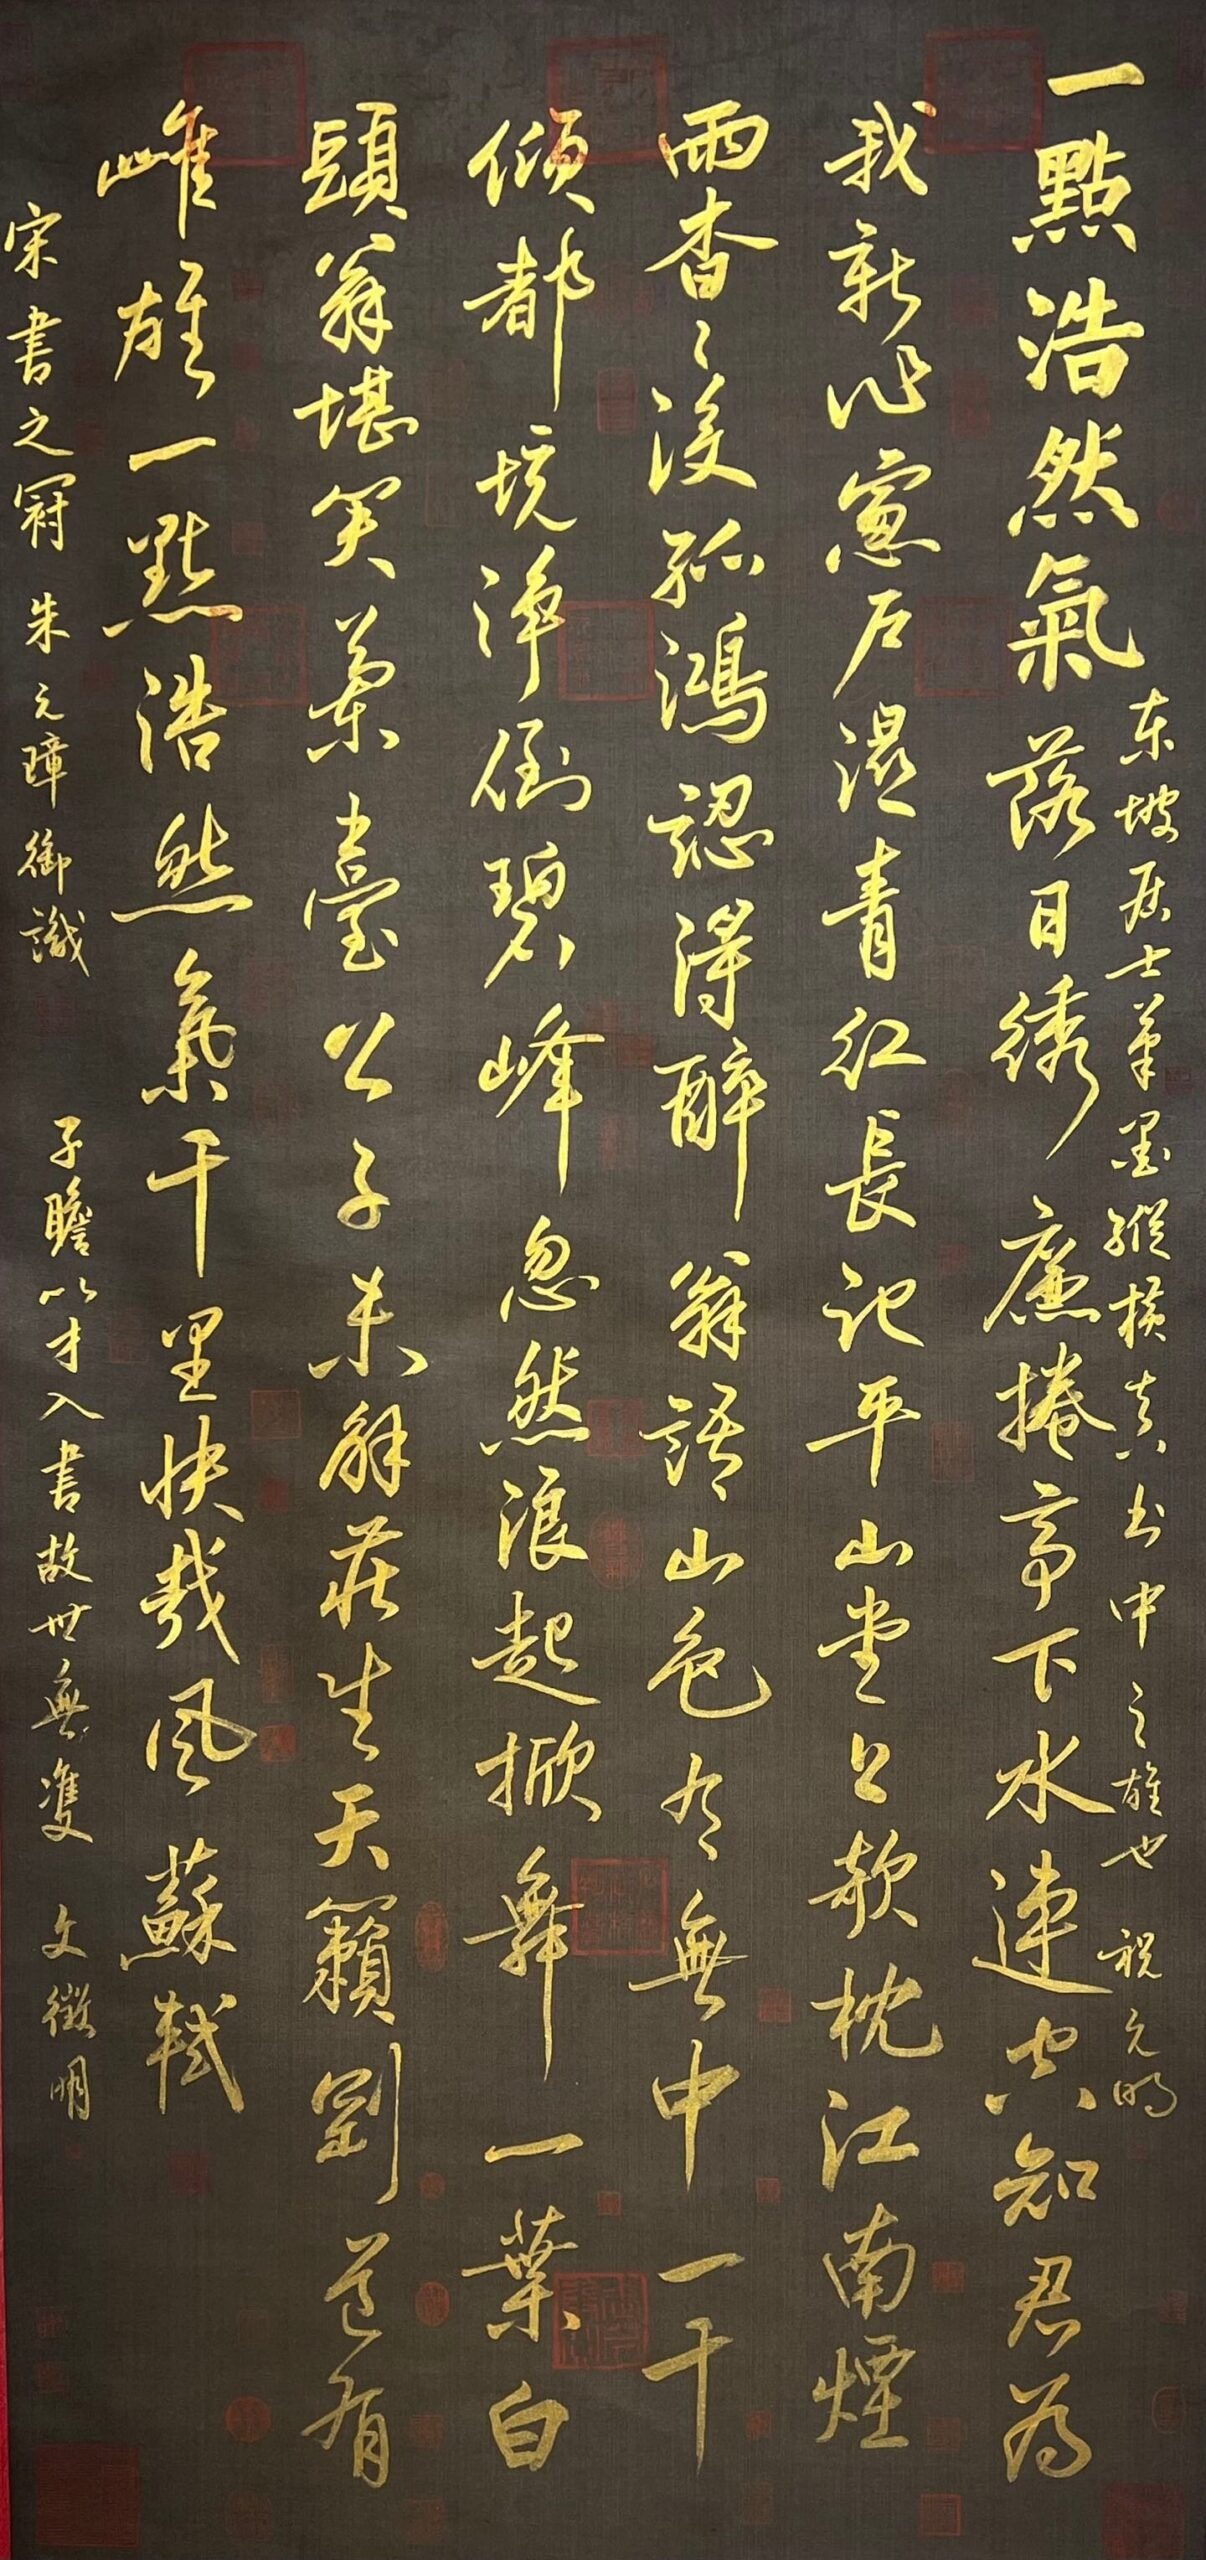 一點浩然氣
落日綉簾捲亭下水連空知君為
我新作窓戶濕青紅長記平山堂上欹枕江南煙
雨杳〻沒孤鴻認得醉翁語山色有無中一千
傾都境淨倒碧峰忽然浪起掀舞一葉白
頭翁堪笑蘭臺公子未解莊生天籟剛道有
雌雄一點浩然氣千里快哉風 蘇軾
东坡居士筆墨縱橫真书中之雄也 祝允明
宋書之冠 朱元璋御識
子瞻以才入書故世無雙 文徵明